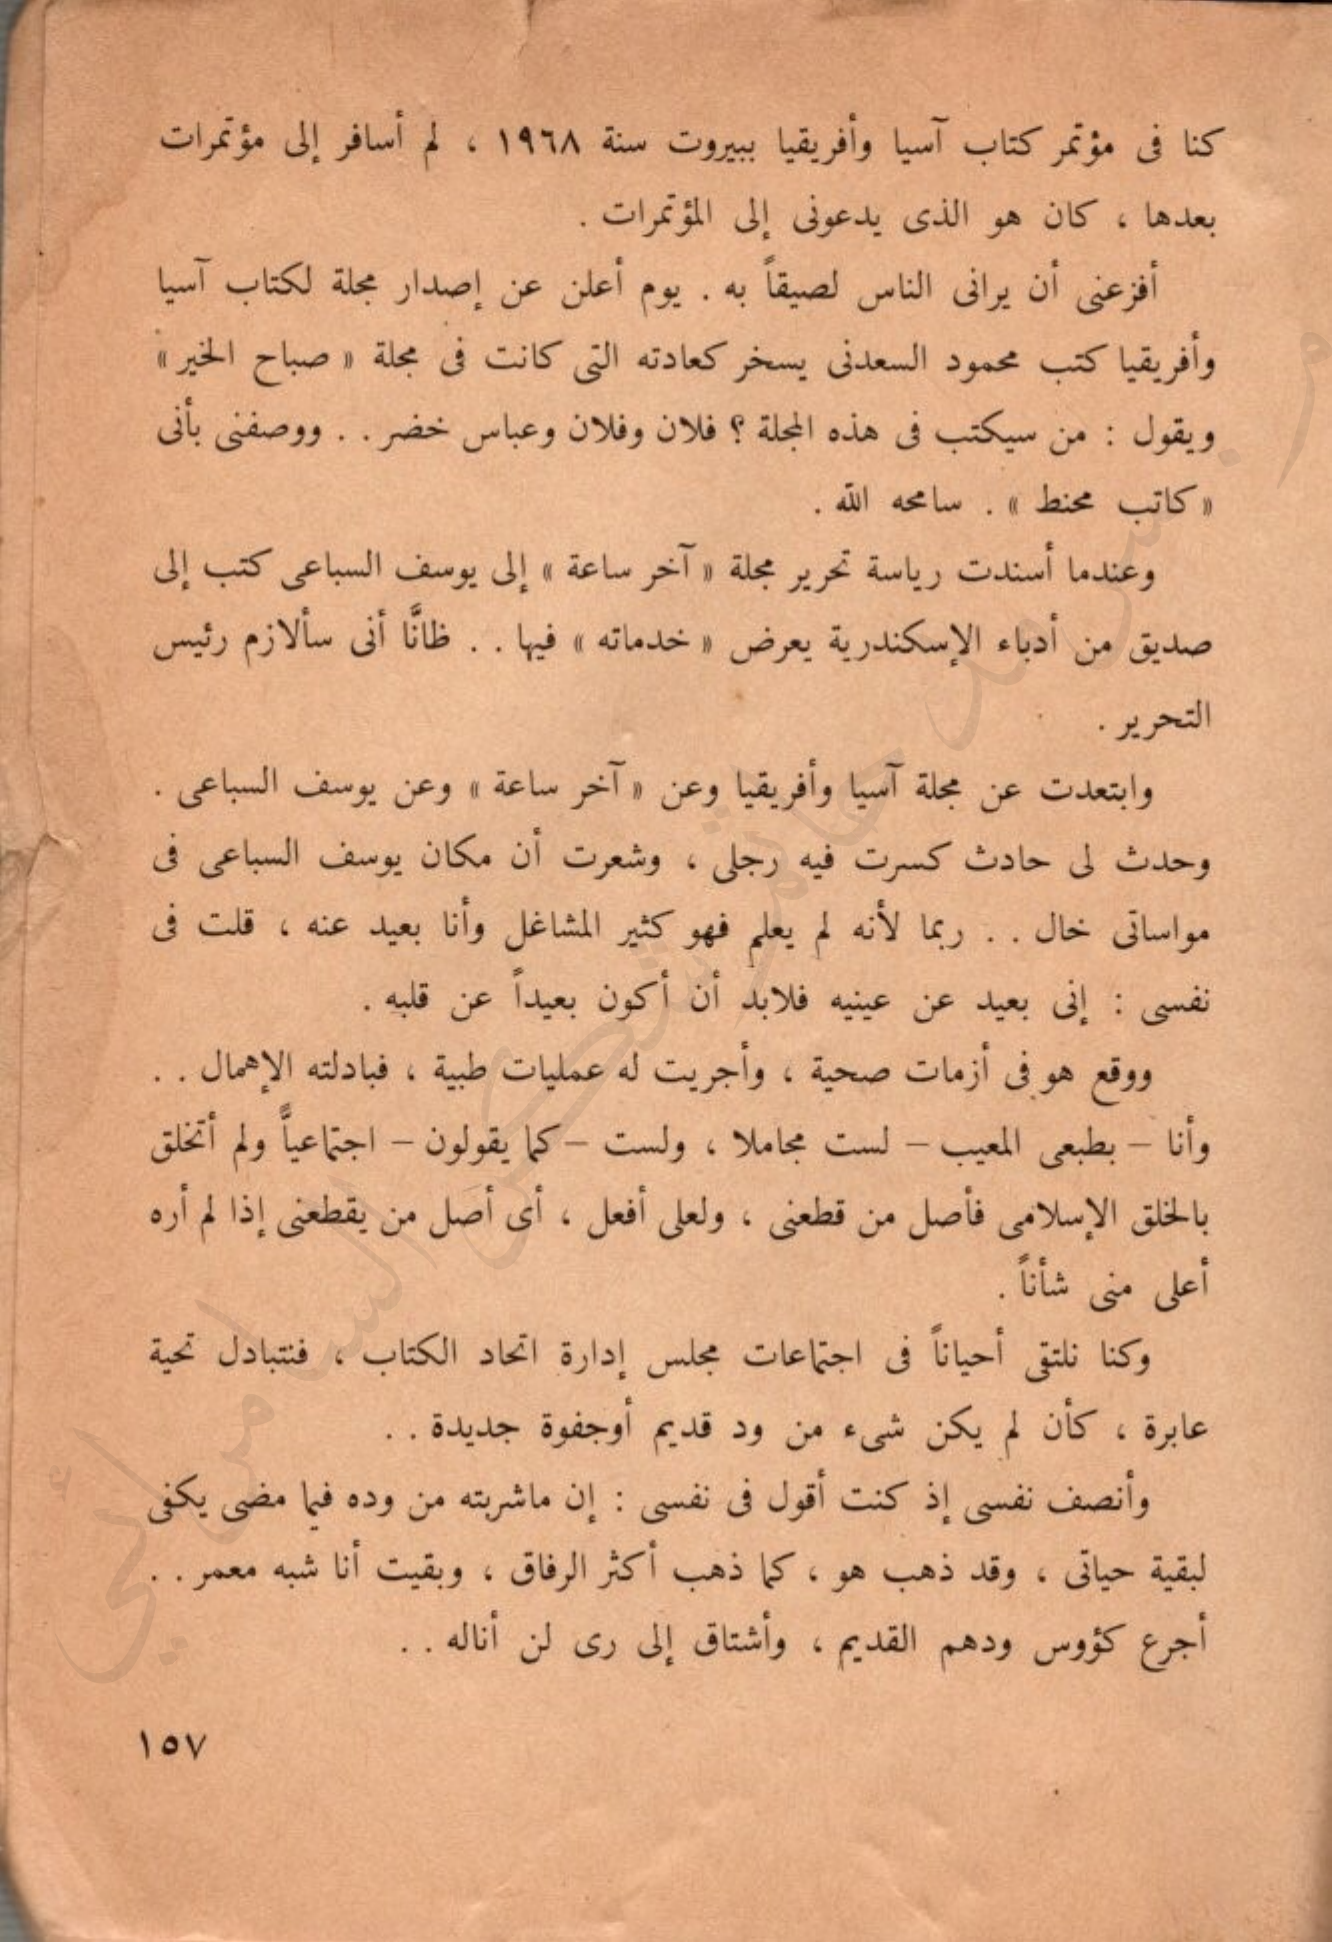 كنا فى مؤتمر كتاب آسيا وأفريقيا ببيروت سنة ١٩٦٨ ، لم أسافر إلى مؤتمرات
بعدها ، كان هو الذى يدعونى إلى المؤتمرات .
أفزعنى أن يرانى الناس لصيقاً به . يوم أعلن عن إصدار مجلة لكتاب آسيا
وأفريقيا كتب محمود السعدنى يسخر كعادته التى كانت فى مجلة « صباح الخير »
ويقول : من سيكتب فى هذه المجلة ؟ فلان وفلان وعباس خضر . . ووصفنى بأنى
« كاتب محنط » . سامحه الله .
وعندما أسندت رياسة تحرير مجلة « آخر ساعة » إلى يوسف السباعى كتب إلى
صديق من أدباء الإسكندرية يعرض « خدماته » فيها . . ظانًّا أنى سألازم رئيس
التحرير .
وابتعدت عن مجلة آسيا وأفريقيا وعن « آخر ساعة » وعن يوسف السباعى .
وحدث لى حادث كسرت فيه رجلى ، وشعرت أن مكان يوسف السباعى فى
مواساتى خال . . ربما لأنه لم يعلم فهو كثير المشاغل وأنا بعيد عنه ، قلت فى
نفسى : إنى بعيد عن عينيه فلابد أن أكون بعيداً عن قلبه .
ووقع هو فى أزمات صحية ، وأجريت له عمليات طبية ، فبادلته الإهمال . .
وأنا – بطبعى المعيب – لست مجاملا ، ولست – كما يقولون – اجتماعيًّا ولم أتخلق
بالخلق الإسلامى فأصل من قطعنى ، ولعلى أفعل ، أى أصل من يقطعنى إذا لم أره
أعلى منى شأناً .
وكنا نلتقى أحياناً فى اجتماعات مجلس إدارة اتحاد الكتاب ، فنتبادل تحية
عابرة ، كأن لم يكن شىء من ود قديم أوجفوة جديدة . .
وأنصف نفسى إذ كنت أقول فى نفسى : إن ماشربته من وده فيما مضى يكفى
لبقية حياتى ، وقد ذهب هو ، كما ذهب أكثر الرفاق ، وبقيت أنا شبه معمر . .
أجرع كؤوس ودهم القديم ، وأشتاق إلى رى لن أناله . .
١٥٧